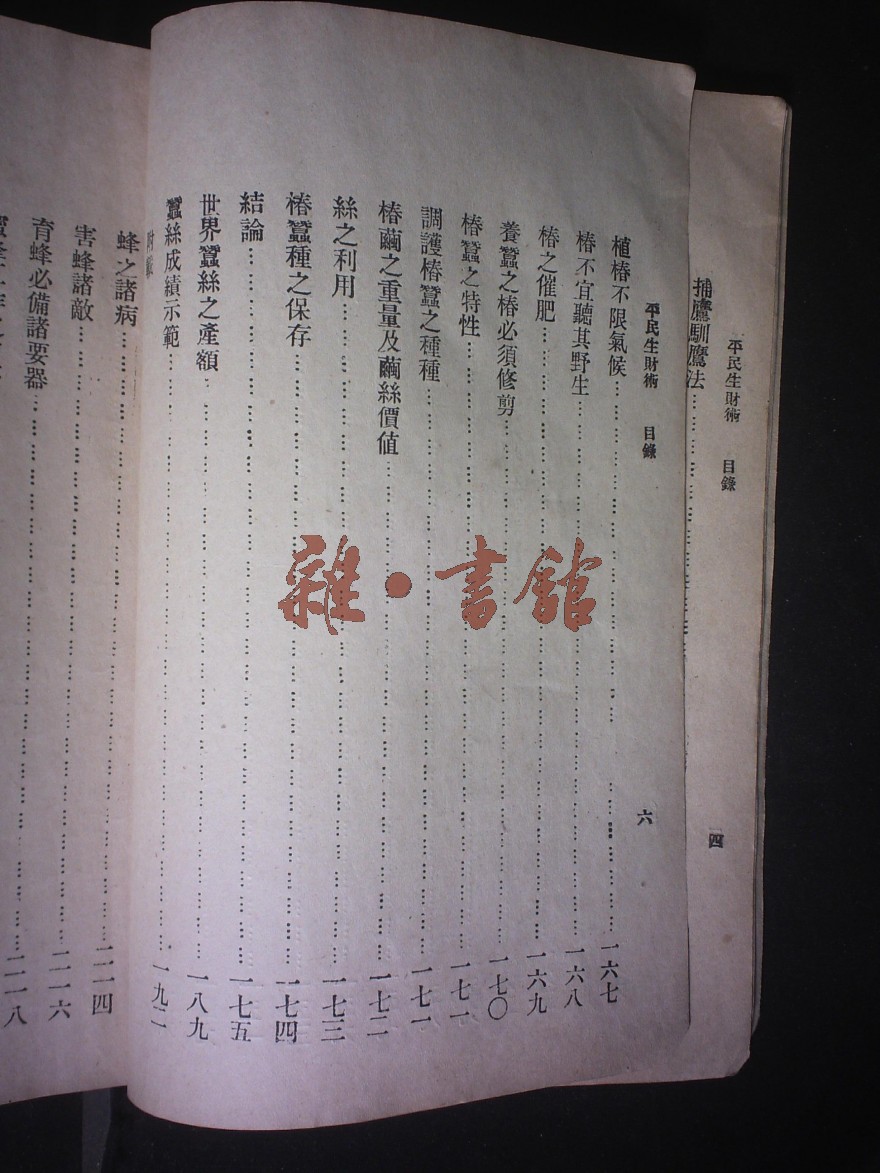 平民生財術 目錄
捕鷹馴鷹法
一四
平民生財術 目錄 六
植椿不限氣候 一六七
椿不宜聽其野生 一六八
椿之催肥 一六九
養蠶之椿必須修剪 一七〇
椿蠶之特性 一七一
調護椿蠶之種種 一七一
椿繭之重量及繭絲價値 一七二
絲之利用 一七三
椿蠶種之保存 一七四
結論 一七五
世界蠶絲之產額 一八九
蠶絲成績示範 一九二
蜂之諸病 二一四
害蜂諸敵 二一六
育蜂必備諸要器 二一八
雜·書館